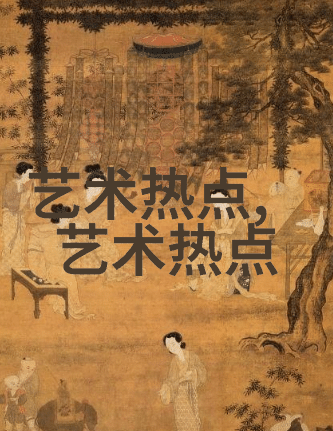 艺术热点,
艺术热点